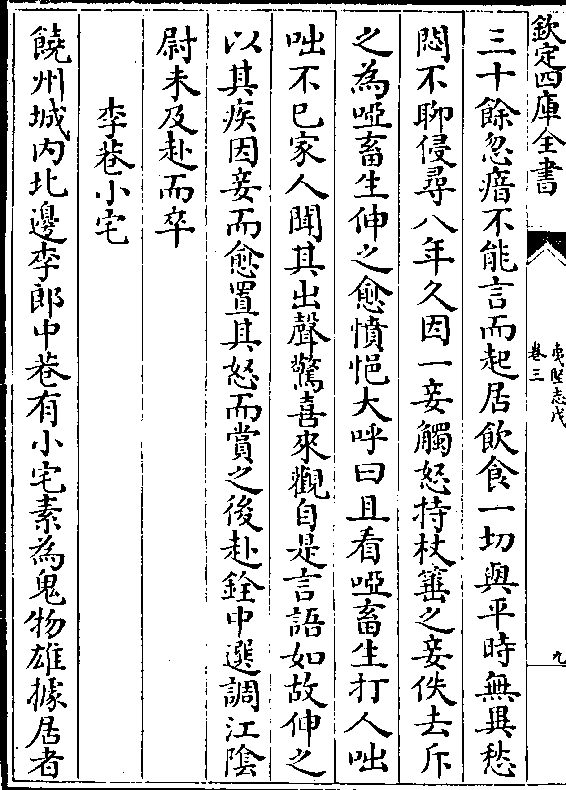 欽定四庫全書
夷堅志戊
卷三
九
三十餘忽瘖不能言而起居飲食一切與平時無異愁
悶不聊侵尋八年久因一妾觸怒持杖箠之妾佚去斥
之為啞畜生伸之愈憤悒大呼曰且看啞畜生打人咄
咄不已家人聞其出聲驚喜來觀自是言語如故伸之
以其疾因妾而愈置其怒而賞之後赴銓中選調江隂
尉未及赴而卒
李巷小宅
饒州城内北邊李郎中巷有小宅素為鬼物雄據居者